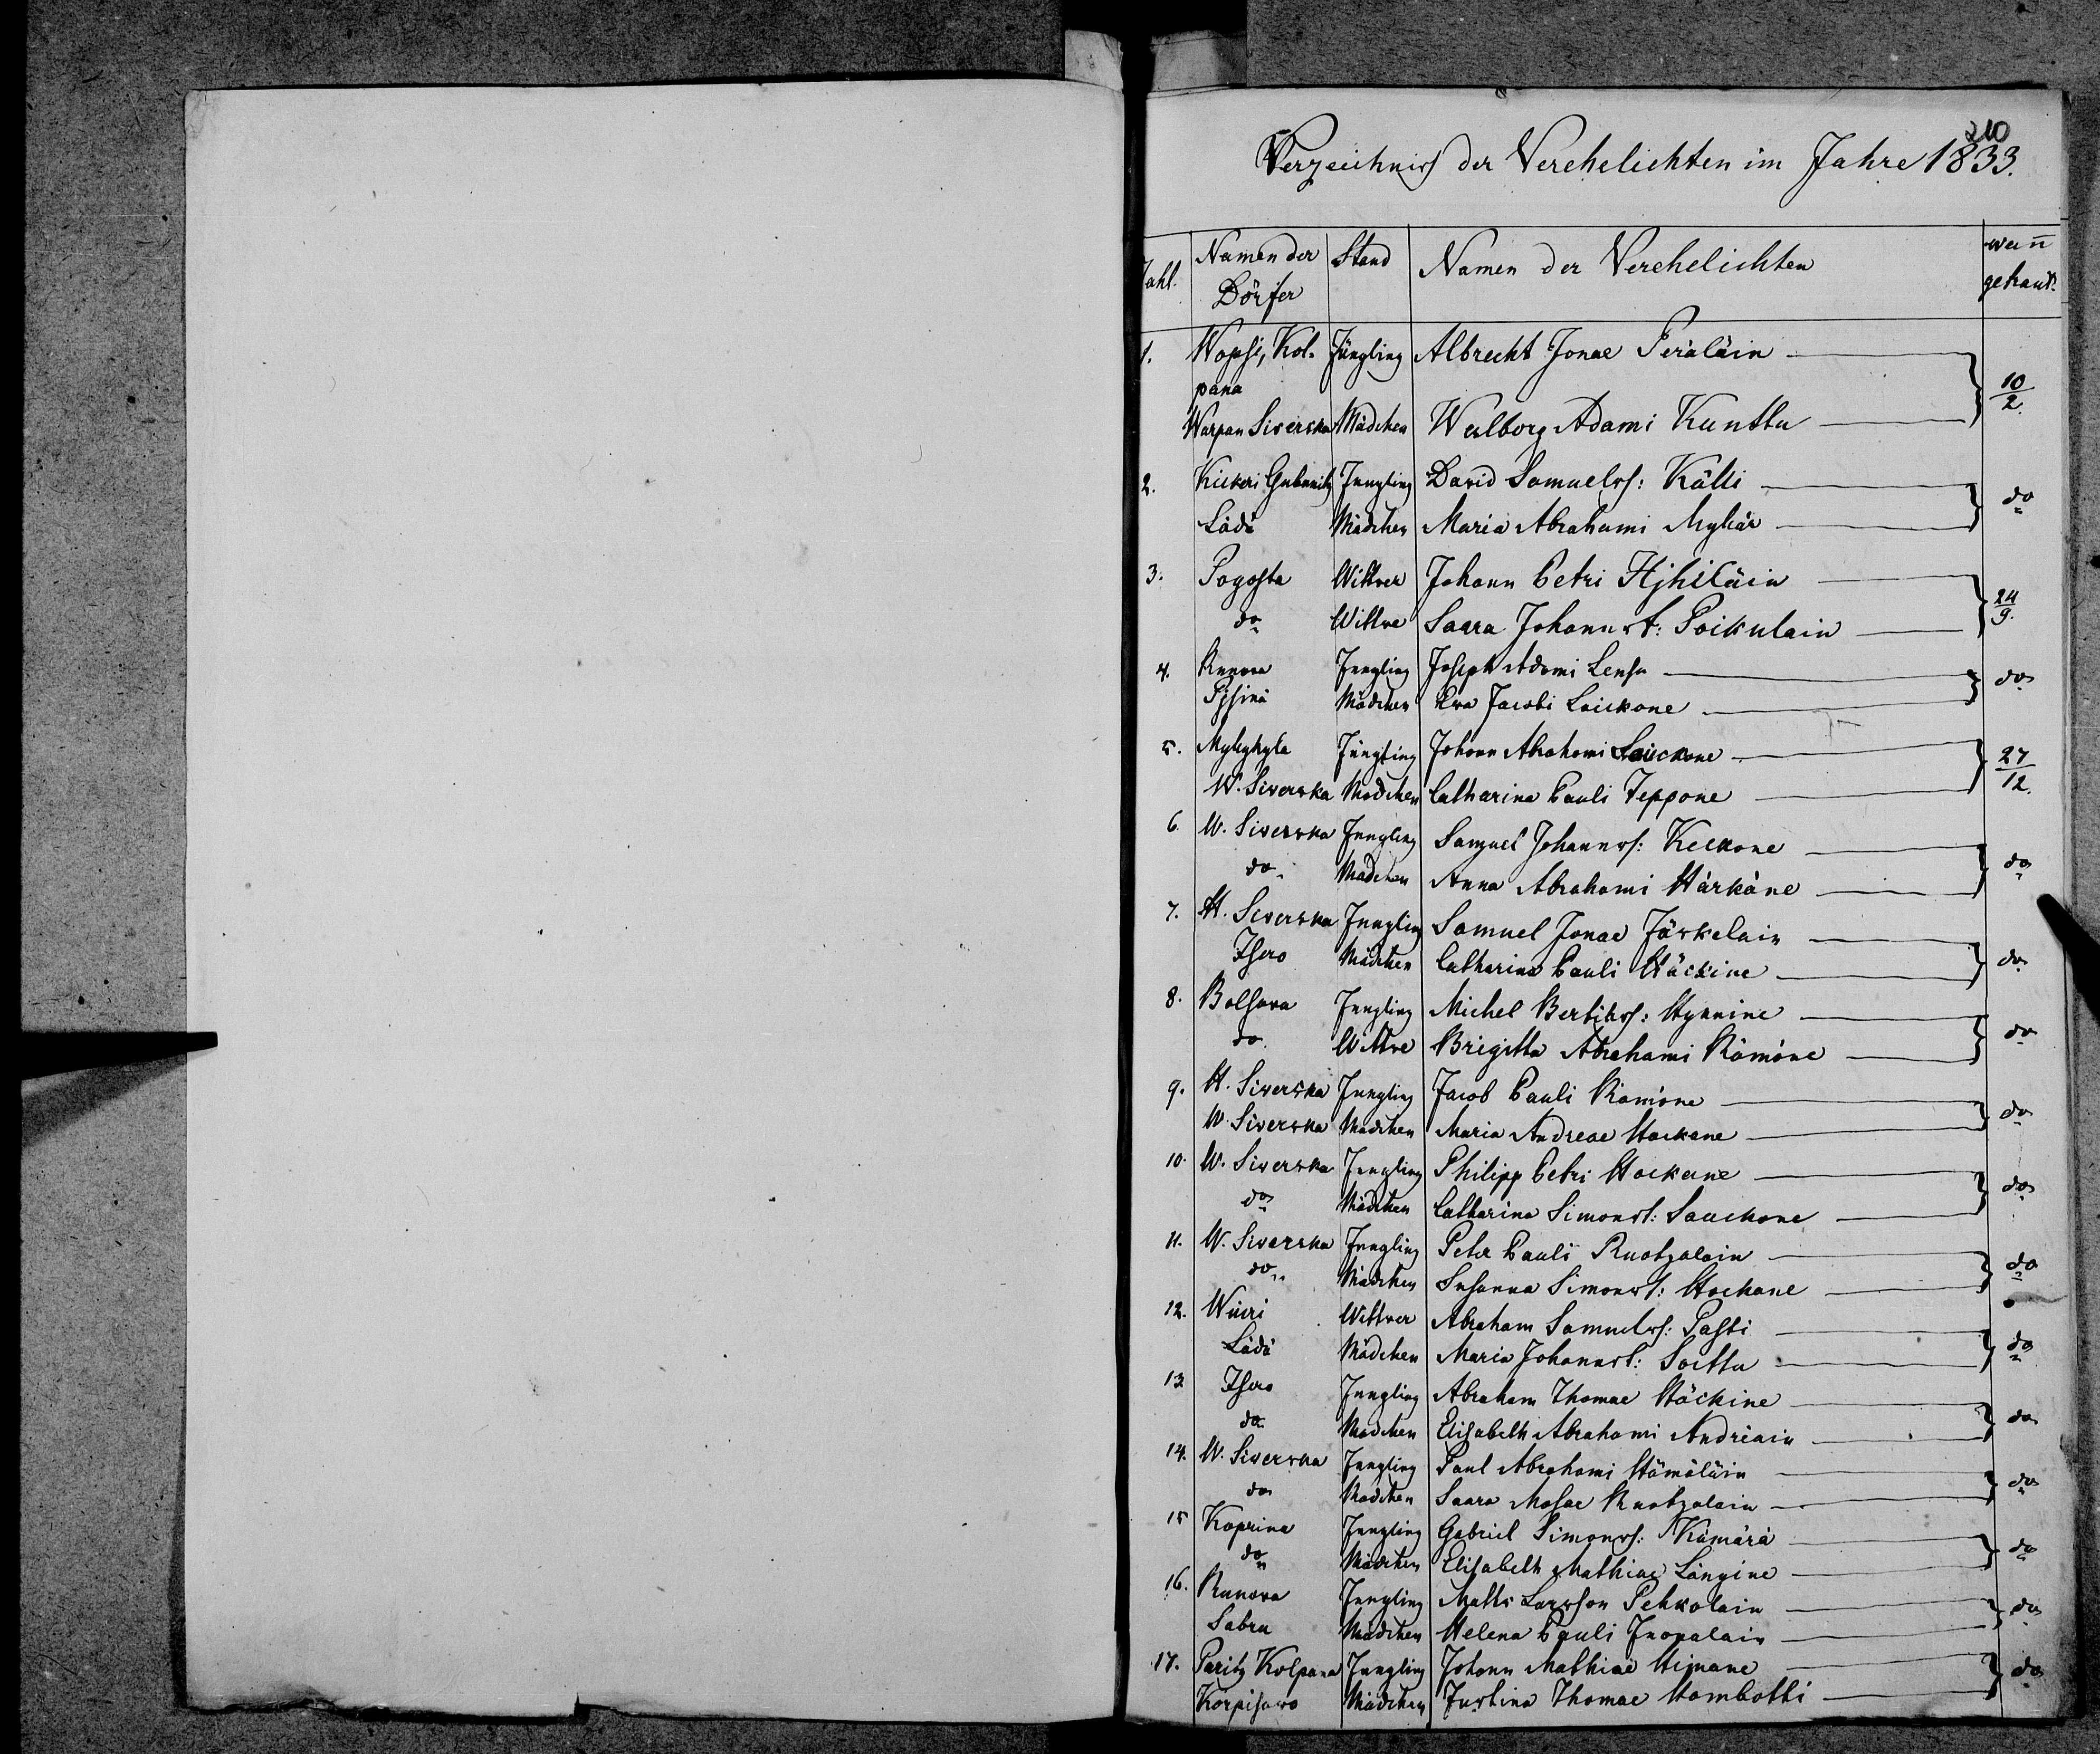 210
Verzeichniss der Verehelichten im Jahre 1833.
Zahl. Namen der Dörfer Stand Namen der Verehelichten wan̄ getraut.
1. Wopsi, Kol- Jüngling Albrecht Jonae Peräläin
pana 10/2.
Warpan Siverska Mädchen Walborg Adami Kunttu
2. Kickeri Jüngling David Samuelss: Källi do
Lädi Mädchen Maria Abrahami Mykär
3. Pogosta Wittwer Johann Petri Hyhiläin 24/9.
do Wittwe Saara Johannst: Poikulain
4. Runova Jungling Joseph Adami Lensu do
Pysinä Mädchen Eva Jacobi Laickone
5. Mylykylä Jüngling Johann Abrahami Sauckone 27/12.
W. Siverska Mädchen Catharina Pauli Teppone
6. W. Siverska Jungling Samuel Johannss: Keckone do
do Mädchen Anna Abrahami Härkäne
7. H. Siverska Jungling Samuel Jonae Järkelain do
Isero Mädchen Catharina Pauli Häckine
8. Bolsova Jungling Michel Bertilss: Hynnine do
do Wittwe Brigitta Abrahami Rämöne
9. H. Siverska Jungling Jacob Pauli Rämöne do
W. Siverska Mädchen Maria Andreae Hackane
10. W. Siverska Jungling Philipp Petri Hackane do
do Mädchen Catharina Simonst: Sauckone
11. W. Siverska Jungling Peter Pauli Ruotzalain do
do Mädchen Susanna Simonst: Hockane
12. Würi Wittwer Abraham Samuelss: Pasti do
Lädi Mädchen Maria Johannst: Soittu
13. Isero Jungling Abraham Thomae Häckine do
do Mädchen Elisabeth Abrahami Andreain
14. W. Siverska Jungling Paul Abrahami Hämäläin do
do Mädchen Saara Mosae Ruotzalain
15 Koprina Jungling Gabriel Simonss: Kämärä do
do Mädchen Elisabeth Mathiae Längine
16. Runova Jungling Matts Larsson Pehkolain do
Sabra Mädchen Helena Pauli Inopalain
17. Paritz Kolpana Jungling Johann Mathiae Himane do
Korpisawo Mädchen Justina Thomae Hombotti